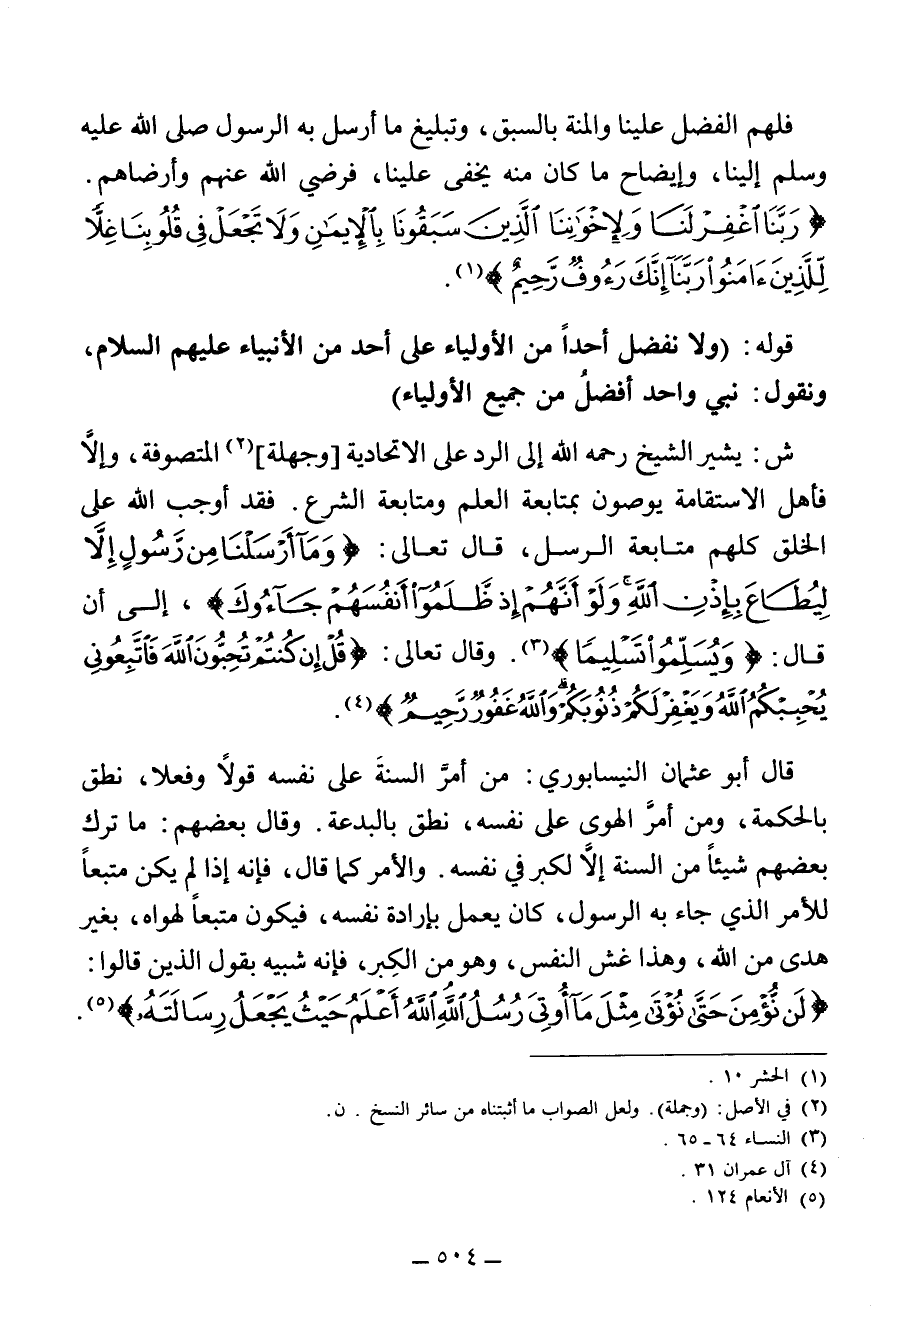 فلهم الفضل علينا والمنة بالسبق، وتبليغ ما أرسل به الرسول صلى الله عليه
وسلم إلينا، وإيضاح ما كان منه يخفى علينا، فرضي الله عنهم وأرضاهم.
﴿ رَبَّنَا ٱغْفِرْ لَنَا وَلِإِخْوَٰنِنَا ٱلَّذِينَ سَبَقُونَا بِٱلْإِيمَٰنِ وَلَا تَجْعَلْ فِى قُلُوبِنَا غِلًّا
لِّلَّذِينَ ءَامَنُوا۟ رَبَّنَآ إِنَّكَ رَءُوفٌ رَّحِيمٌ ﴾(١).
قوله: (ولا نفضل أحداً من الأولياء على أحد من الأنبياء عليهم السلام،
ونقول: نبي واحد أفضلُ من جميع الأولياء)
ش: يشير الشيخ رحمه الله إلى الرد على الاتحادية [وجهلة](٢) المتصوفة، وإلَّا
فأهل الاستقامة يوصون بمتابعة العلم ومتابعة الشرع. فقد أوجب الله على
الخلق كلهم متابعة الرسل، قال تعالى: ﴿ وَمَآ أَرْسَلْنَا مِن رَّسُولٍ إِلَّا
لِيُطَاعَ بِإِذْنِ ٱللَّهِ ۚ وَلَوْ أَنَّهُمْ إِذ ظَّلَمُوٓا۟ أَنفُسَهُمْ جَآءُوكَ﴾ ، إلى أن
قال: ﴿ وَيُسَلِّمُوا۟ تَسْلِيمًا ﴾(٣). وقال تعالى: ﴿ قُلْ إِن كُنتُمْ تُحِبُّونَ ٱللَّهَ فَٱتَّبِعُونِى
يُحْبِبْكُمُ ٱللَّهُ وَيَغْفِرْ لَكُمْ ذُنُوبَكُمْ ۗ وَٱللَّهُ غَفُورٌ رَّحِيمٌ ﴾(٤).
قال أبو عثمان النيسابوري: من أمرَّ السنةَ على نفسه قولًا وفعلا، نطق
بالحكمة، ومن أمرَّ الهوى على نفسه، نطق بالبدعة. وقال بعضهم: ما ترك
بعضهم شيئاً من السنة إلَّا لكبر في نفسه. والأمر كما قال، فإنه إذا لم يكن متبعاً
للأمر الذي جاء به الرسول، كان يعمل بإرادة نفسه، فيكون متبعاً لهواه، بغير
هدى من الله، وهذا غش النفس، وهو من الكِبر، فإنه شبيه بقول الذين قالوا:
﴿ لَن نُّؤْمِنَ حَتَّىٰ نُؤْتَىٰ مِثْلَ مَآ أُوتِىَ رُسُلُ ٱللَّهِ ۘ ٱللَّهُ أَعْلَمُ حَيْثُ يَجْعَلُ رِسَالَتَهُۥ﴾(٥).
(١) الحشر ١٠ .
(٢) في الأصل: (وجملة). ولعل الصواب ما أثبتناه من سائر النسخ . ن.
(٣) النساء ٦٤ ـ ٦٥ .
(٤) آل عمران ٣١ .
(٥) الأنعام ١٢٤ .
ـ ٥٠٤ ـ